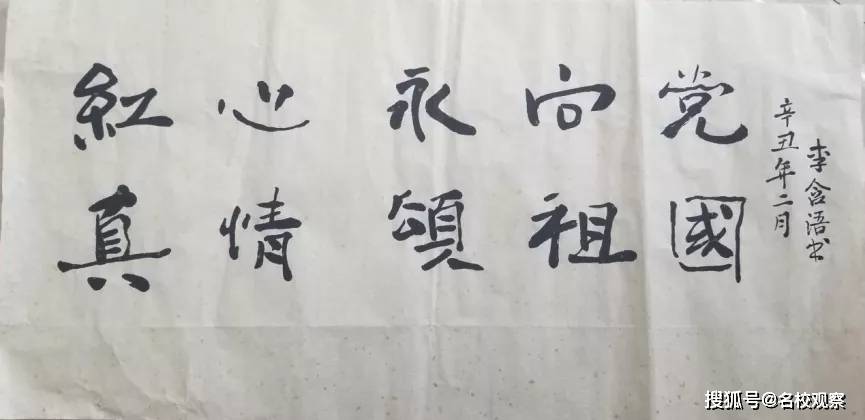 紅心永向党
真情頌祖國
辛丑年二月
李含语书
搜狐号@名校观察